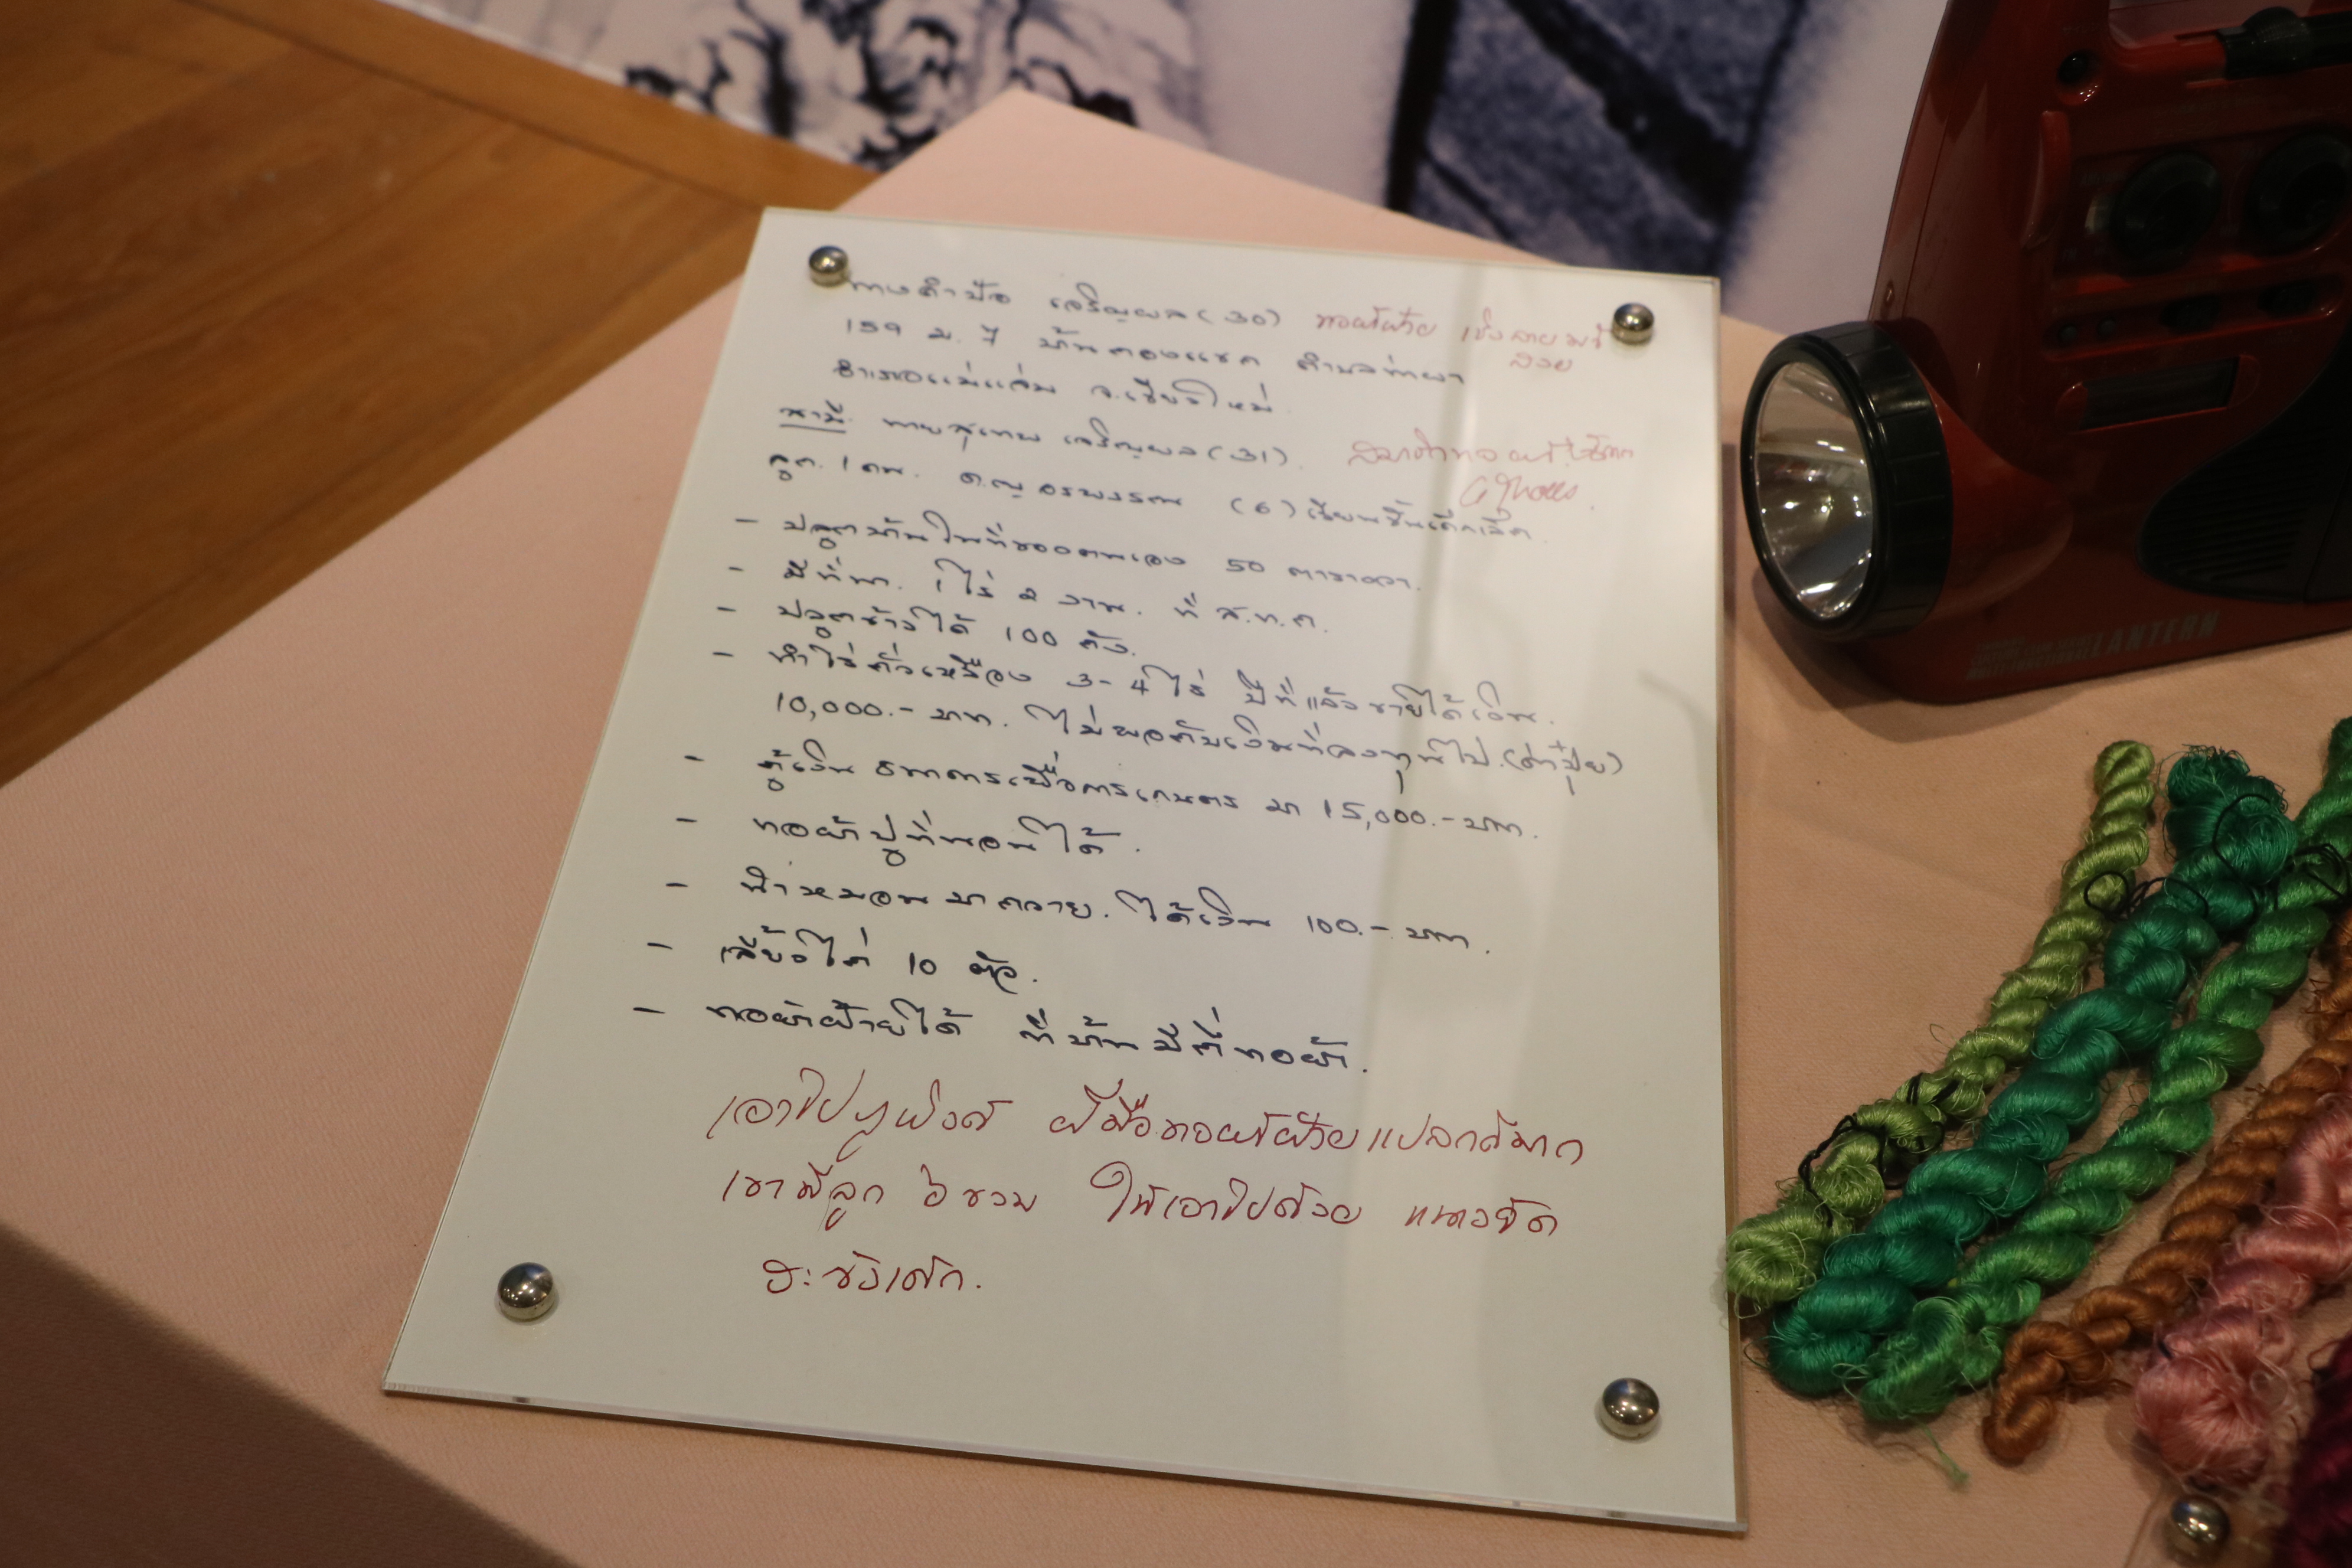 นางคำปัอ เจริญผล (30) ทอผ้าฝ้าย เชิงลายมาก้
สวย
159 ม. 7 บ้านกองแขก ตำบลท่าผา
อำเภอแม่แจ่ม จ.เชียงใหม่
สามี นายสุเทพ เจริญผล (31).
ลูก 1 คน. ด.ญ อรพรรณ (6) เรียนชั้นเด็กเล็ก
- ปลูกบ้านในที่ของตนเอง 50 ตารางวา.
- มีที่นา. 1 ไร่ 2 งาน. ที่ ส.ท.ก.
- ปลูกข้าวได้ 100 ถัง.
- ทำไร่ถั่วเหลือง 3-4 ไร่ ปีที่แล้วขายได้เงิน.
10,000.- บาท. ไม่พอกับเงินที่ลงทุนไป.(ค่าปุ๋ย)
- กู้เงิน ธนาคารเพื่อการเกษตร มา 15,000.- บาท.
- ทอผ้าปูที่นอนได้.
- นำหมอนมาถวาย. ได้เงิน 100.- บาท.
- เลี้ยงไก่ 10 ตัว.
- ทอผ้าฝ้ายได้ ที่บ้านมีกี่ทอผ้า.
เอาไป ฝีมือทอผ้าฝ้ายแปลกดีมาก
เขามีลูก 6 ขวบ ให้เอาไปด้วย
LANTERN